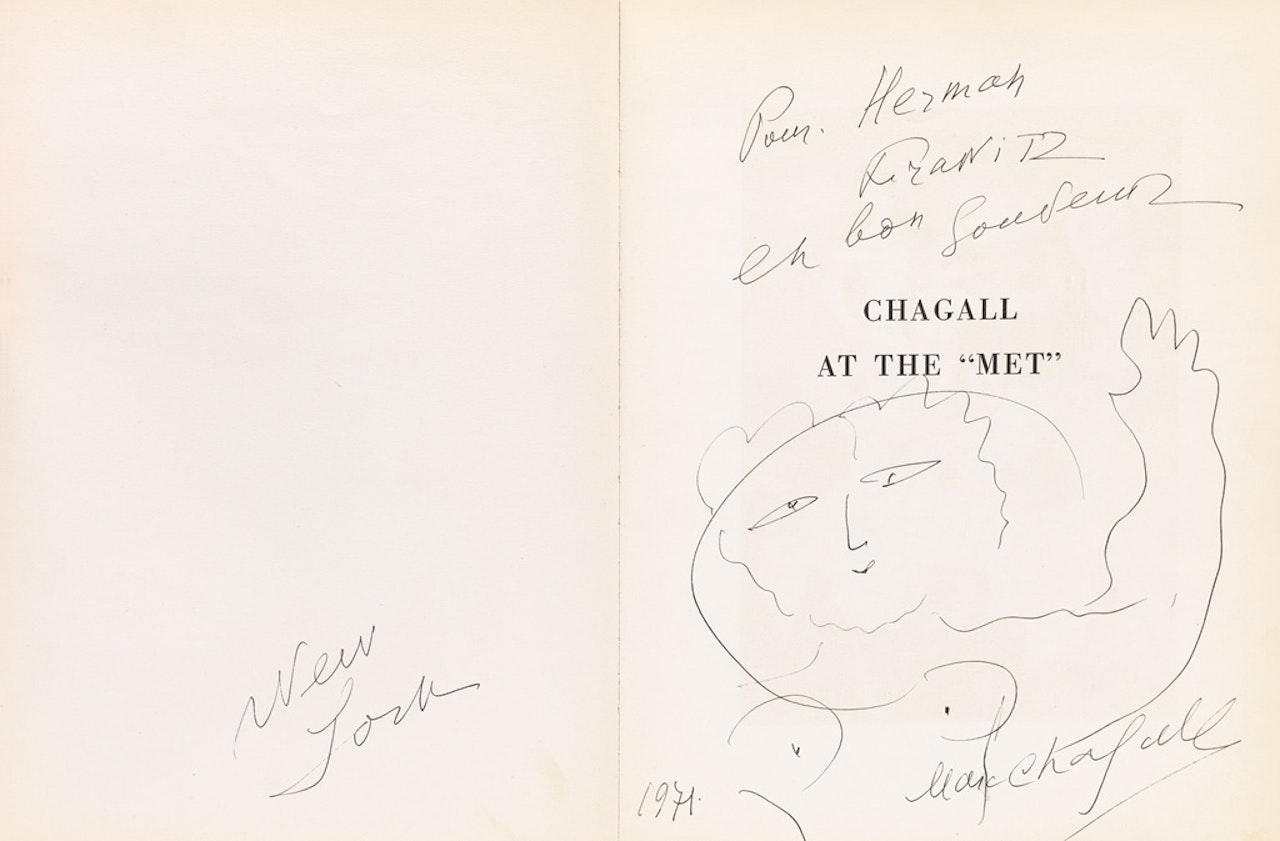 New
York
Pour. Herman
Krawitz
en bon souvenir
CHAGALL
AT THE “MET”
Marc Chagall
1971.